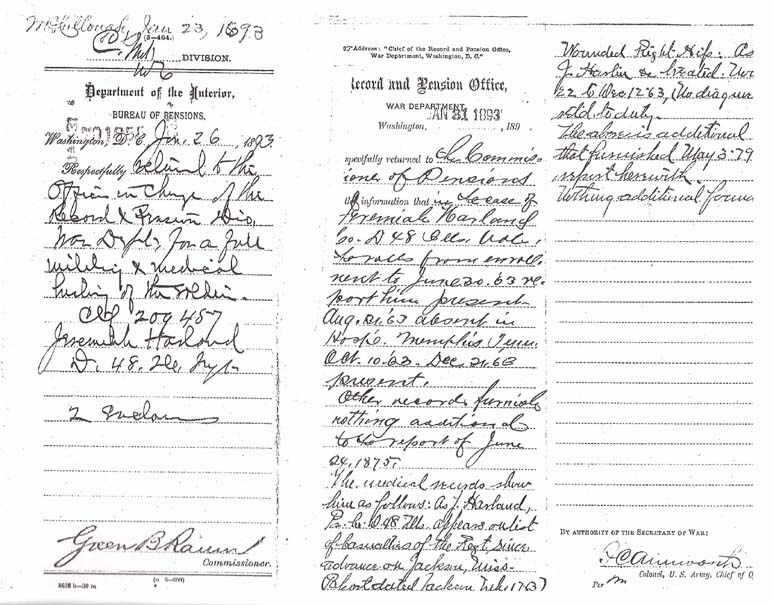 McCullough, Jan 23, 1893
(3-464.)
DIVISION.
Department of the Interior,
BUREAU OF PENSIONS.
Washington, D.C., Jan. 26, 1893.
Respectfully returned to the
Officer in Charge of the
Record & Pension Div,
War Dept. for a full
military & medical
history of the soldier.
Ctf 209 457
Jeremiah Harland
D. 48. Ill. Inf.
2 Enclosures
Green B Raum
Commissioner.
Address: "Chief of the Record and Pension Office,
War Department, Washington, D. C."
Record and Pension Office,
WAR DEPARTMENT,
JAN 31 1893
Washington, , 189
spectfully returned to the Commiss-
ioner of Pensions
the information that in the case of
Jeremiah Harland
Co. D 48 Ills. Vols.,
the rolls from enroll-
ment to June 30. '63 re-
port him present
Aug. 31. '63 absent in
Hosp. Memphis Tenn.
Oct. 10. 63. Dec. 31. 63
present.
Other records furnish
nothing additional
to the report of June
24, 1875.
The medical records show
him as follows: As J. Harland,
D. 48 Ills. appears on list
of casualties of the Regt, since
advance on Jackson, Miss.
Report dated Jackson
Wounded Right Hip. As
J. Harlin & treated
22 to Dec 12 63, (No diagnos
retd. to duty.
The above is additional
that furnished May 3. 79
report herewith.
Nothing additional found
BY AUTHORITY OF THE SECRETARY OF WAR:
F C Ainsworth
Colonel, U. S. Army, Chief of O
Per